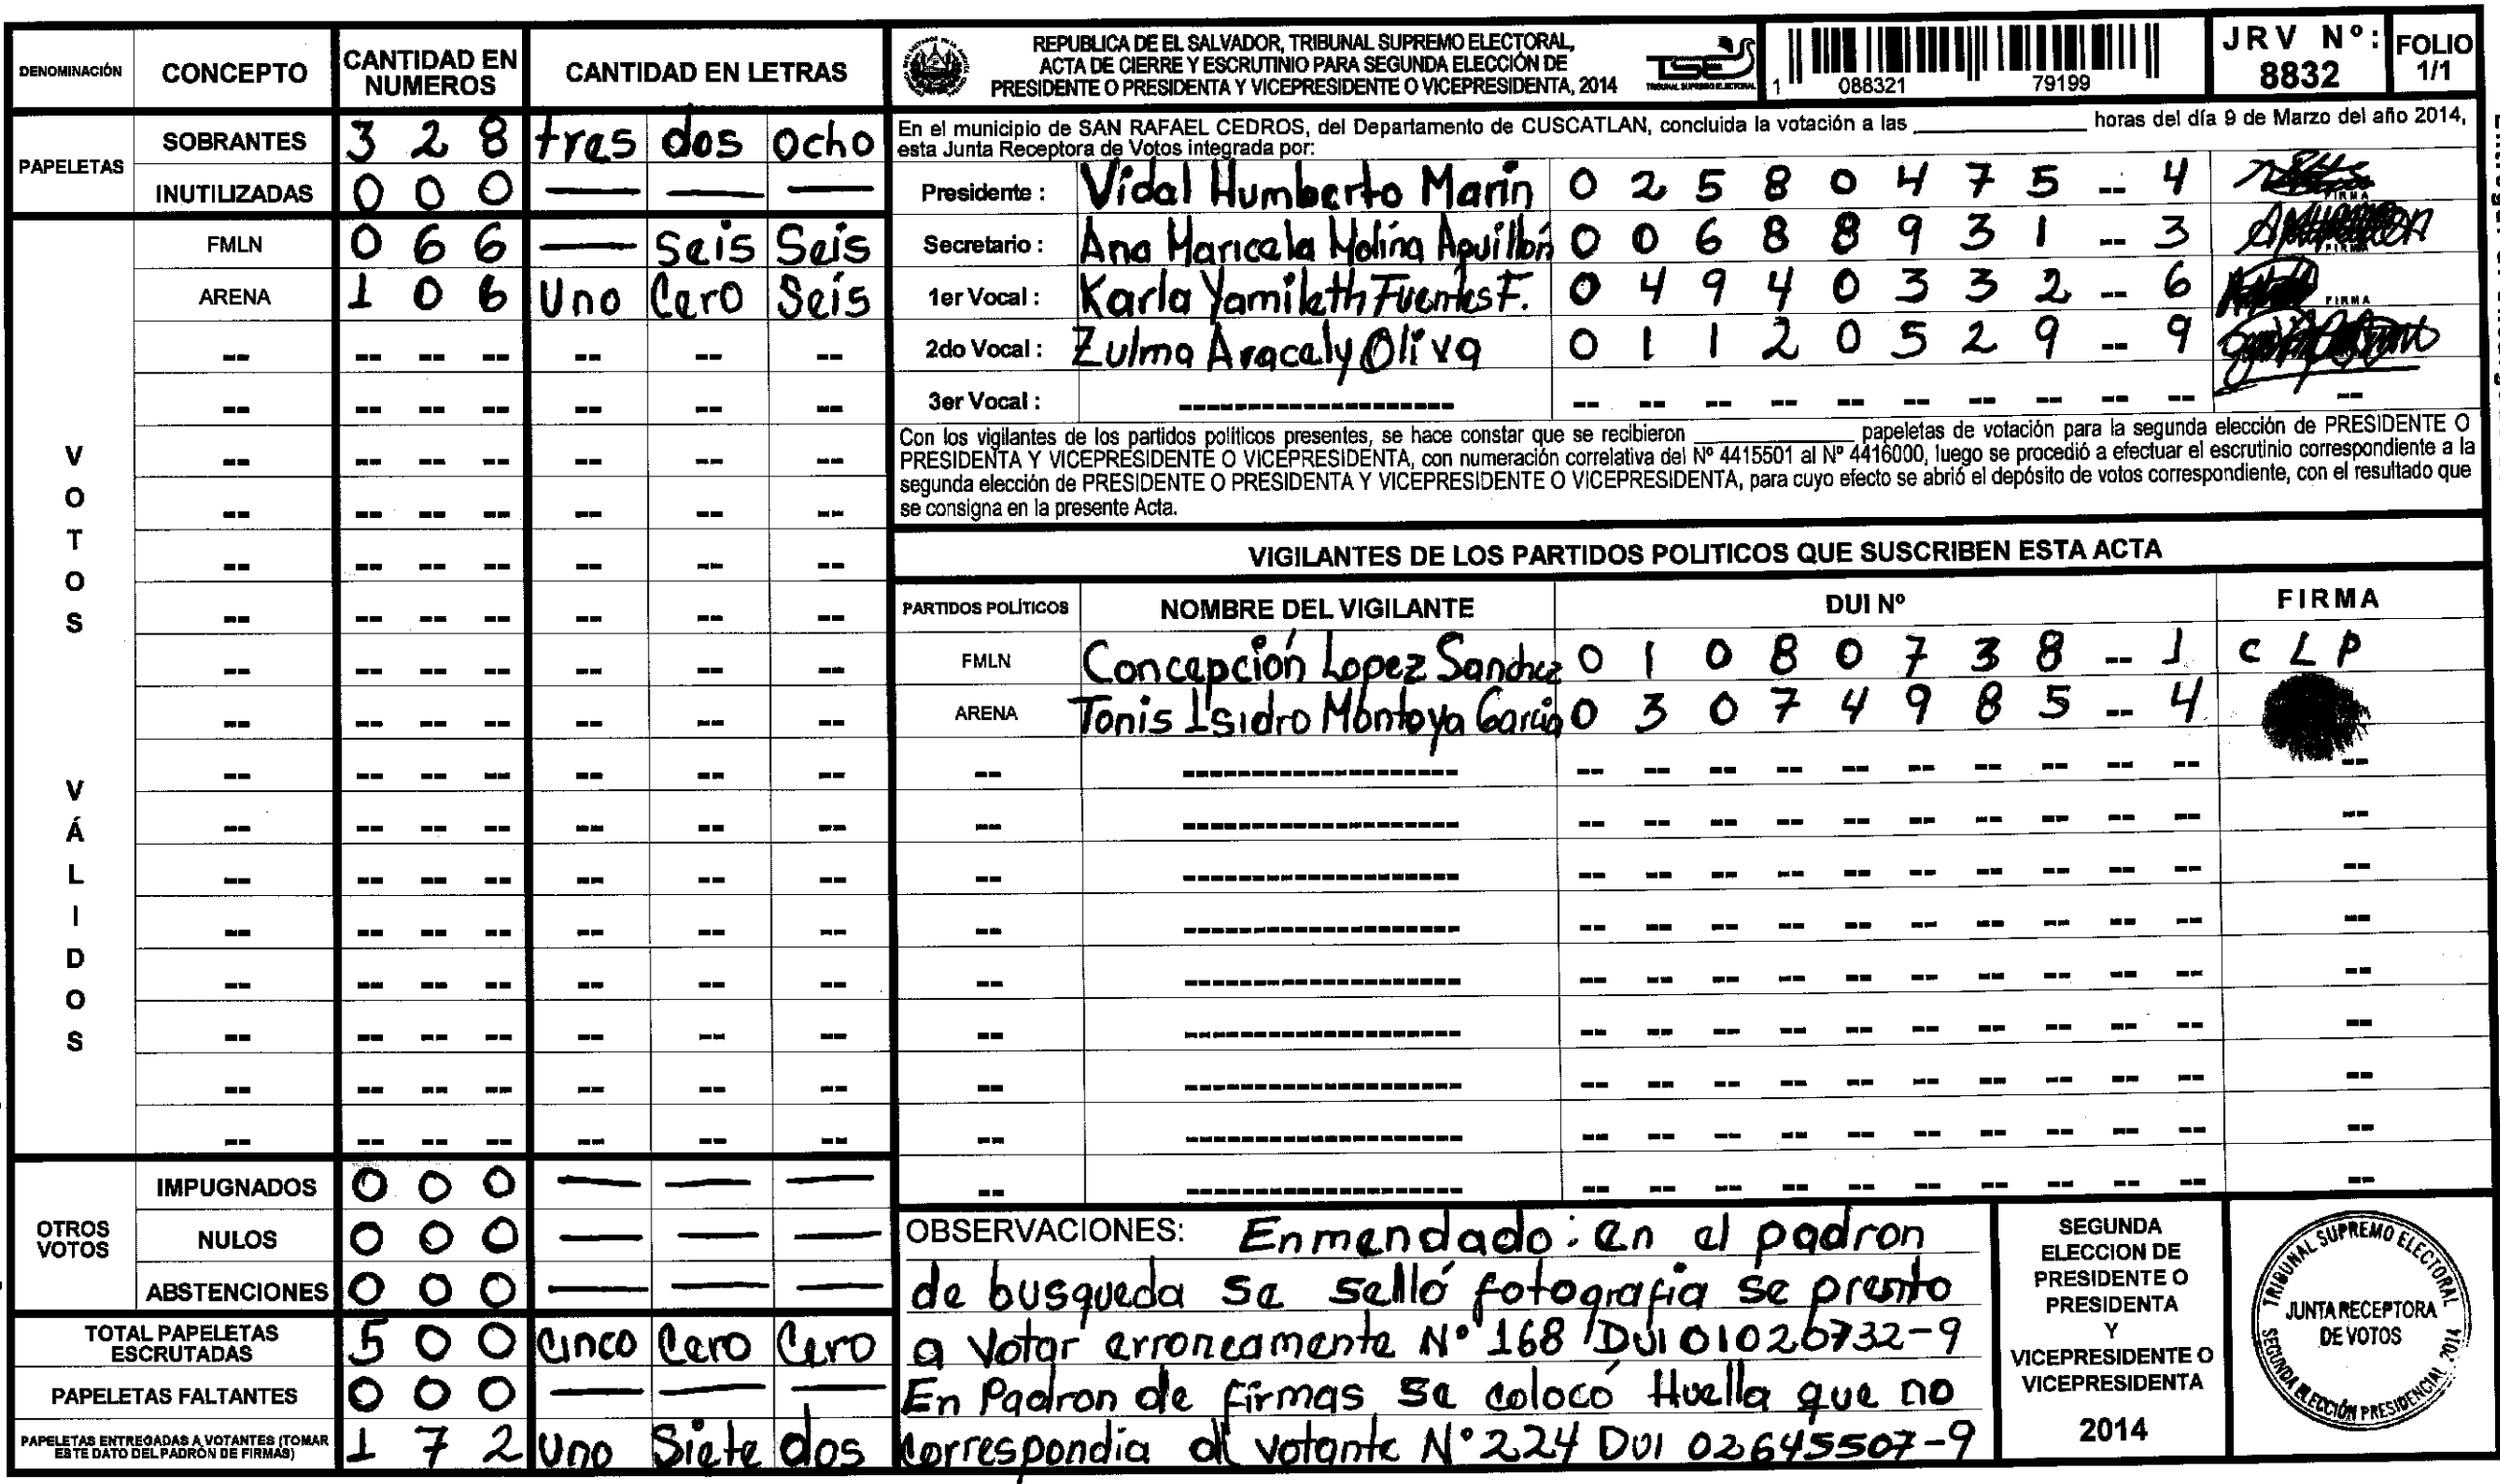 DENOMINACIÓN CONCEPTO CANTIDAD EN NUMEROS CANTIDAD EN LETRAS
PAPELETAS
SOBRANTES 3 2 8 tres dos ocho
INUTILIZADAS 0 0 0 — — —
VOTOS VÁLIDOS
FMLN 0 6 6 — Seis Seis
ARENA 1 0 6 Uno Cero Seis
OTROS VOTOS
IMPUGNADOS 0 0 0 — — —
NULOS 0 0 0 — — —
ABSTENCIONES 0 0 0 — — —
TOTAL PAPELETAS ESCRUTADAS 5 0 0 Cinco Cero Cero
PAPELETAS FALTANTES 0 0 0 — — —
PAPELETAS ENTREGADAS A VOTANTES (TOMAR ESTE DATO DEL PADRÓN DE FIRMAS) 1 7 2 Uno Siete dos
REPUBLICA DE EL SALVADOR, TRIBUNAL SUPREMO ELECTORAL,
ACTA DE CIERRE Y ESCRUTINIO PARA SEGUNDA ELECCIÓN DE
PRESIDENTE O PRESIDENTA Y VICEPRESIDENTE O VICEPRESIDENTA, 2014
TSE
TRIBUNAL SUPREMO ELECTORAL
1 088321 79199
JRV Nº: 8832
FOLIO 1/1
En el municipio de SAN RAFAEL CEDROS, del Departamento de CUSCATLAN, concluida la votación a las ____ horas del día 9 de Marzo del año 2014,
esta Junta Receptora de Votos integrada por:
Presidente : Vidal Humberto Marin 0 2 5 8 0 4 7 5 -- 4 FIRMA
Secretario : Ana Maricela Molina Aguillón 0 0 6 8 8 9 3 1 -- 3 FIRMA
1er Vocal : Karla Yamileth Fuentes F. 0 4 9 4 0 3 3 2 -- 6 FIRMA
2do Vocal : Zulma Aracaly Oliva 0 1 1 2 0 5 2 9 -- 9
3er Vocal : --------------------
Con los vigilantes de los partidos políticos presentes, se hace constar que se recibieron ____ papeletas de votación para la segunda elección de PRESIDENTE O
PRESIDENTA Y VICEPRESIDENTE O VICEPRESIDENTA, con numeración correlativa del Nº 4415501 al Nº 4416000, luego se procedió a efectuar el escrutinio correspondiente a la
segunda elección de PRESIDENTE O PRESIDENTA Y VICEPRESIDENTE O VICEPRESIDENTA, para cuyo efecto se abrió el depósito de votos correspondiente, con el resultado que
se consigna en la presente Acta.
VIGILANTES DE LOS PARTIDOS POLITICOS QUE SUSCRIBEN ESTA ACTA
PARTIDOS POLÍTICOS NOMBRE DEL VIGILANTE DUI Nº FIRMA
FMLN Concepción Lopez Sanchez 0 1 0 8 0 7 3 8 -- 1 C L P
ARENA Tonis Isidro Montoya Garcia 0 3 0 7 4 9 8 5 -- 4
OBSERVACIONES: Enmendado: en el padron
de busqueda se selló fotografia se presnto
a votar erroneamente Nº 168 DUI 01026732-9
En Padron de firmas se colocó Huella que no
correspondia al votante Nº 224 DUI 02645507-9
SEGUNDA
ELECCION DE
PRESIDENTE O
PRESIDENTA
Y
VICEPRESIDENTE O
VICEPRESIDENTA
2014
TRIBUNAL SUPREMO ELECTORAL
JUNTA RECEPTORA
DE VOTOS
SEGUNDA ELECCIÓN PRESIDENCIAL, 2014